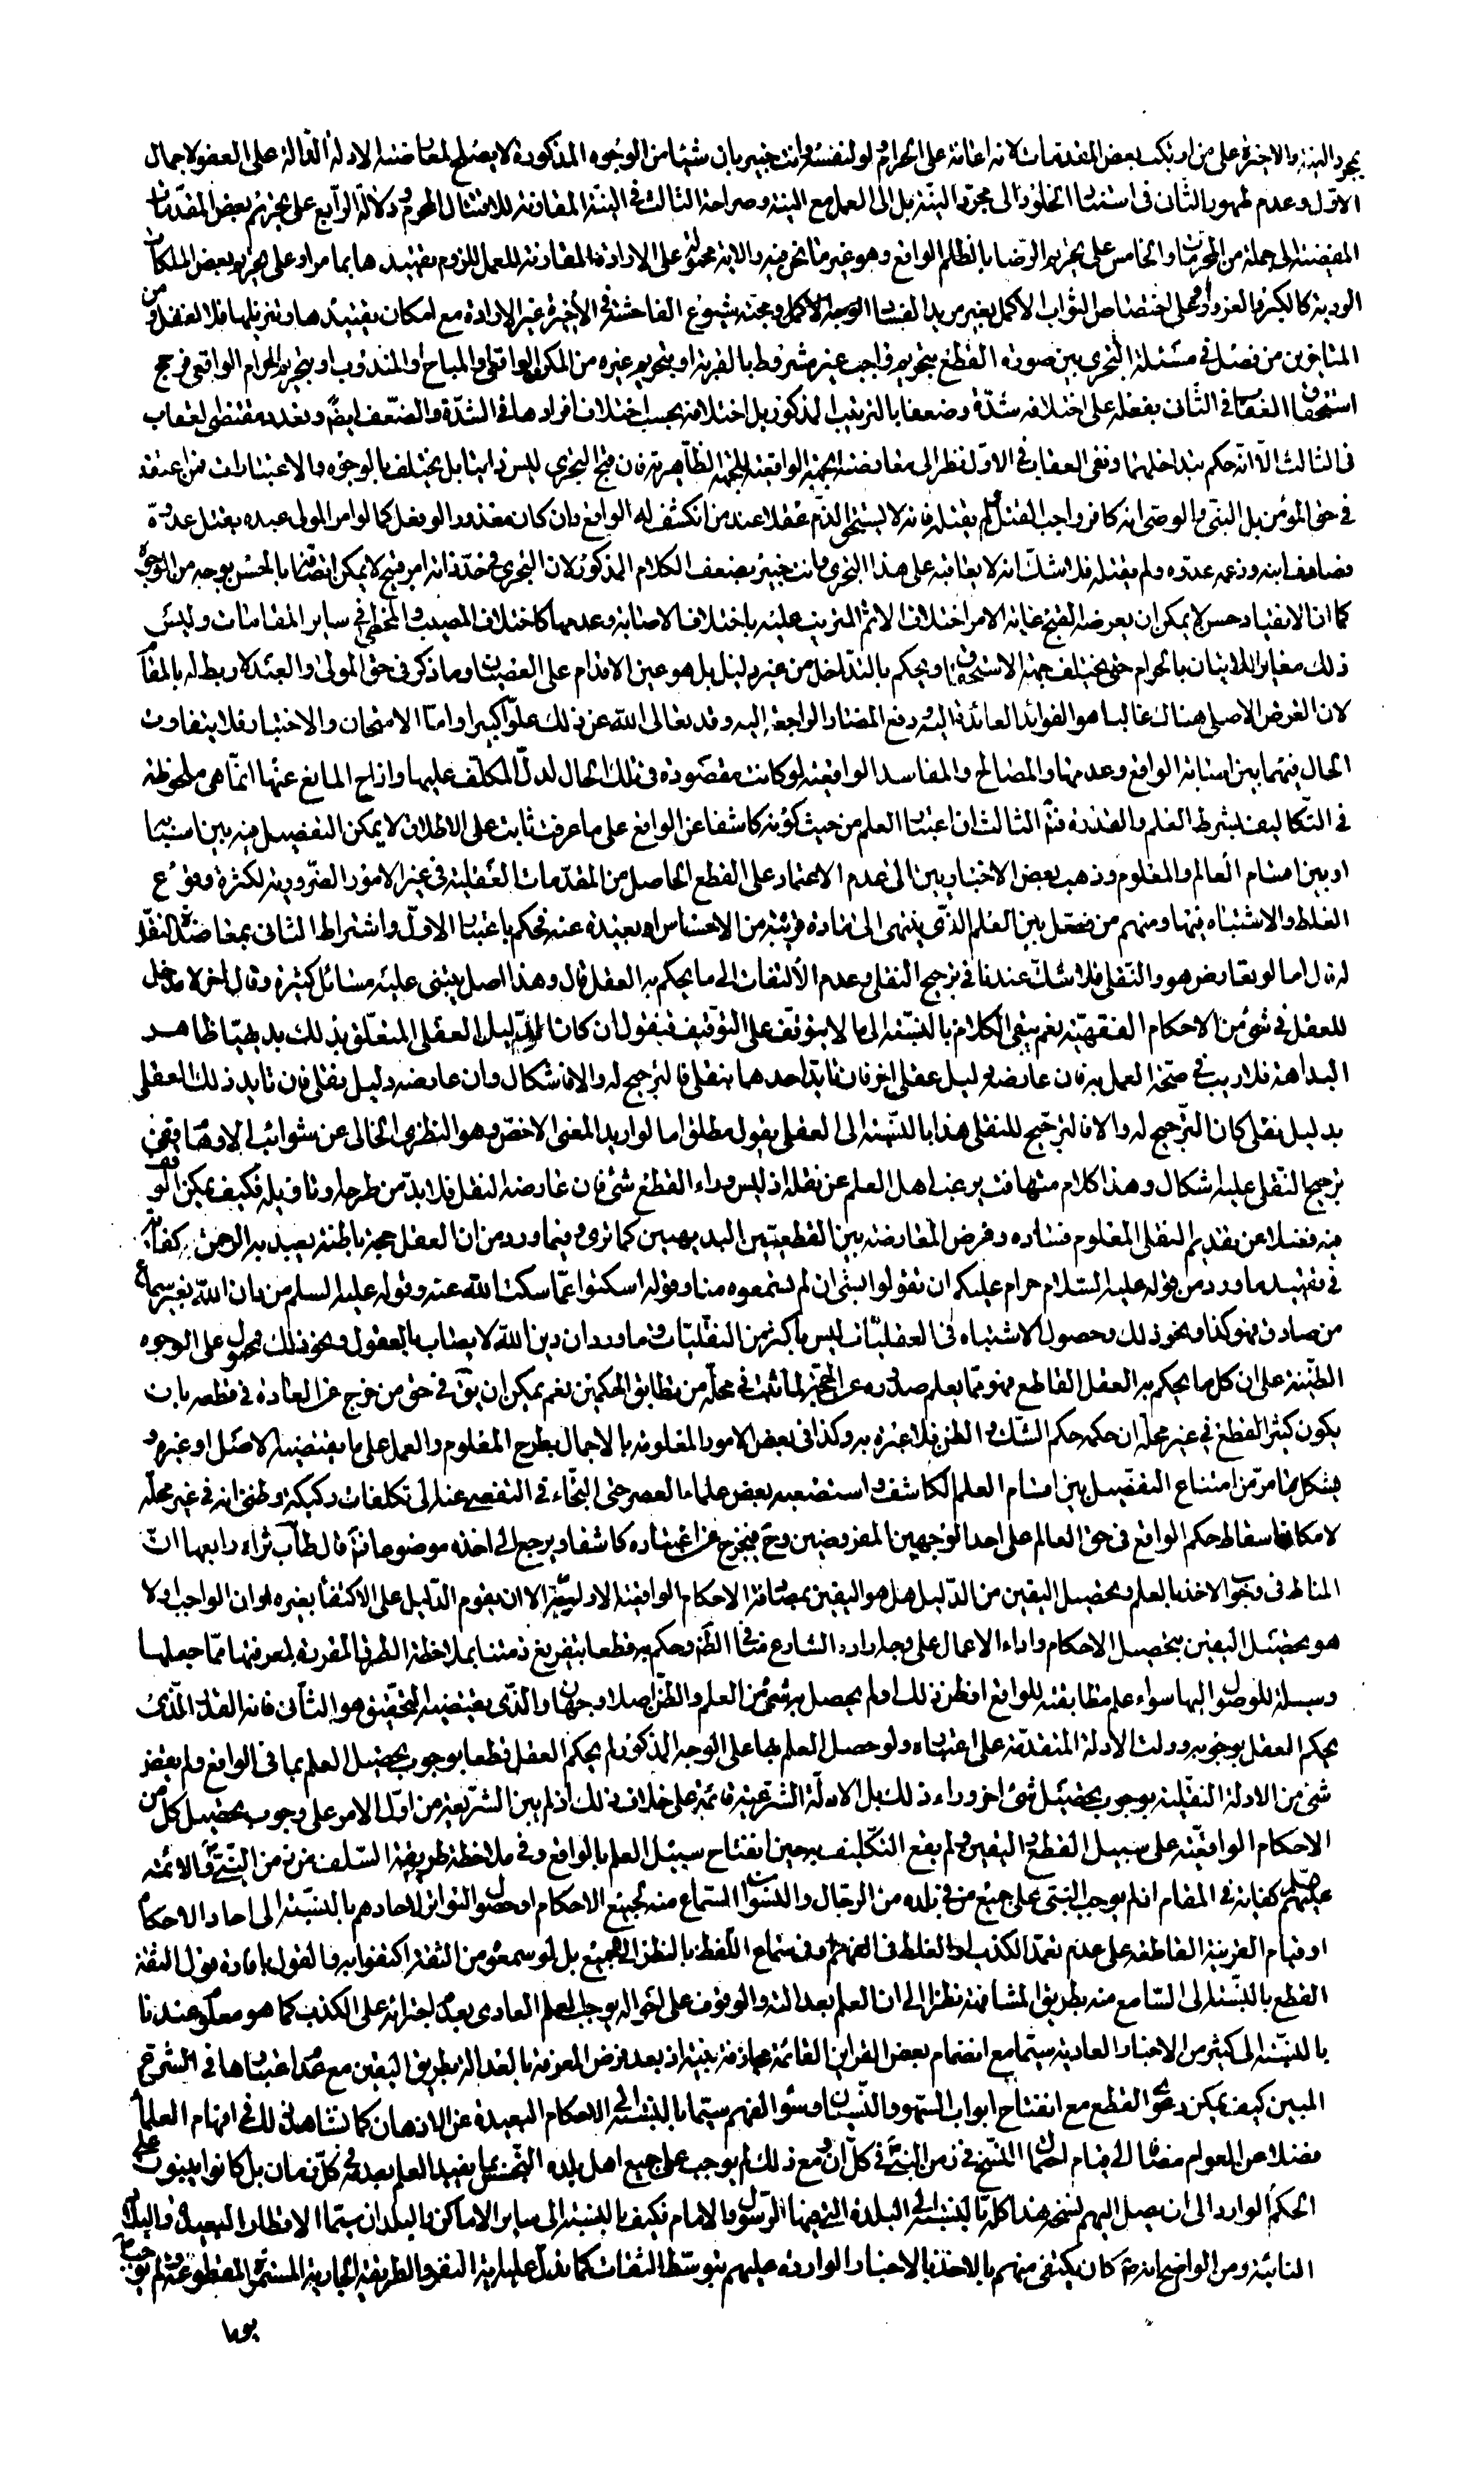 بمجرد النية والاخيرة على من ارتكب بعض المقدمات لانه اعانة على الحرام ولو لنفسه وانت خبير بان شيئا من الوجوه المذكورة لا يصلح لمعارضة الادلة الدالة على العفو لاجمال
الاوّل وعدم ظهور الثانى فى استناد الخلود الى مجرّد النيّة بل الى العمل مع النية وصراحة الثالث فى النيّة المقارنة للاشتغال بالمحرم ودلالة الرابع على تحريم بعض المقدّمات
المفضية الى جملة من المحرمات والخامس على تحريم الرّضا بالظلم الواقع وهو غير ما نحن فيه والاية محمولة على الارادة المقارنة للعمل للزوم تقييدها بما مرّ او على تحريم بعض الملكات
الردية كالكبر والعزو او محمل اختصاص الثواب الاكمل بغير مريد الفساد الوجه الاكمل ومحبة شيوع الفاحشة فى الأخيرة غير الارادة مع امكان تقييدها وتنزيلها فلا تغفل ومن
المتاخرين من فصل فى مسئلة التجرى بين صورة القطع بتحريم واجب غير مشروط بالقربة او بتحريم غيره من المكروه الواقعى والمباح والمندوب او بتحريم الحرام الواقعى فرجح
استحقاق العقاب فى الثانى بفعله على اختلافه شدّة وضعفا بالترتيب المذكور بل اختلافه بحسب اختلاف أفرادها فى الشدّة والضّعف ايضً وتعدد مقتضى العقاب
فى الثالث الّا انّه حكم بتداخلهما ونفى العقاب فى الاوّل نظرا الى معارضة الجهة الواقعية للجهة الظّاهرية فان قبح التجرى ليس ذاتيا بل يختلف بالوجوه والاعتبارات فمن اعتقد
فى حق المؤمن بل النبّى والوصى انه كافر واجب القتل فلم يقتله فانه لا يستحق الذّم عقلا عند من انكشف له الواقع وان كان معذورا لو فعل كما لو امر المولى عبده بقتل عدوّه
فصادف ابنه وزعمه عدوّه ولم يقتله فلا شكّ انه لا يعاقبه على هذا التجرى وانت خبير بضعف الكلام المذكور لان التجرى فى حدّ ذاته امر قبيح لا يمكن اتّصافه بالحسن بوجه من الوجوه
كما ان الانقياد حسن لا يمكن ان يعرضه القبح غاية الامر اختلاف الاثم المترتب عليه باختلاف الاصابة وعدمها كاختلاف المصيب والمخطئ فى ساير المقامات وليس
ذلك مغايرا للاتيان بالحرام حتى يختلف جهة الاستحقاق او يحكم بالتّداخل من غير دليل بل هو عين الاقدام على العصيان وما ذكر فى حق المولى والعبد لا ربط له بالمقام
لان الغرض الاصلى هناك غالبا هو الفوائد العائدة اليه ودفع المضار الواجعة اليه وقد تعالى اللّه عن ذلك علوّا كبيرا وامّا الامتحان والاختبار فلا يتفاوت
الحال فيهما بين اصابة الواقع وعدمها والمصالح والمفاسد الواقعية لو كانت مقصودة فى تلك الحال لدلّ المكلّف عليها وازاح المانع عنها انّما هى ملحوظة
فى التّكاليف بشرط العلم والقدرة فتمّ الثالث ان اعتبار العلم من حيث كونه كاشفا عن الواقع على ما عرفت ثابت على الاطلاق لا يمكن التفصيل فيه بين اسبابها
او بين اقسام العالم والمعلوم وذهب بعض الاخباريين الى عدم الاعتماد على القطع الحاصل من المقدّمات العقلية فى غير الامور الضّرورية لكثرة وقوع
الغلط والاشتباه فيها ومنهم من فصّل بين العلم الذّى ينتهى الى مادة قريبة من الاحساس او بعيدة عنه فحكم باعتبار الاوّل واشتراط الثانى بمعاضدة النقل
له قال اما لو تعارض هو والنّقلى فلا شكّ عندنا فى ترجيح النقلى وعدم الالتفات الى ما يحكم به العقل قال وهذا اصل يبتنى عليه مسائل كثيرة وقال اخر لا مدخل
للعقل فى شئ من الاحكام الفقهيّة نعم يبقى الكلام بالنسّبة الى ما لا يتوقف على التوقيف فنقول ان كان الدّليل العقلى المتعلّق بذلك بديهيّا ظاهر
البداهة فلا ريب فى صحّة العمل به فان عارضه دليل عقلى اخر فان تايّد احدهما بنقلى فالترجيح له والا فاشكال وان عارضه دليل نقلى فان تايد ذلك العقلى
بدليل نقلى كان التّرجيح له والا فالترجيح للنقلى هذا بالنسّبة الى العقلى بقول مطلق اما لو اريد المعنى الاخصّ وهو الفطرى الخالى عن شوائب الاوهام ففى
ترجيح النّقلى عليه اشكال وهذا كلام متهافت يرغب اهل العلم عن نقله اذ ليس وراء القطع شئ فان عارضه النقل فلا بدّ من طرحه وتاويله فكيف يمكن التوقف
فيه فضلا عن تقديم النقلى المعلوم فساده وفرض المعارضة بين القطعيّين البديهيين كما ترى وفيما ورد من ان العقل حجة باطنة يعبد به الرحمن كفاية
فى تقييد ما ورد من قوله عليه السّلام حرام عليكم ان تقولوا بشئ ان لم تسمعوه منا وقوله اسكتوا عمّا سكت اللّه عنه وقوله عليه السلم من دان اللّه بغير سماع
من صادق فهو كذا ونحو ذلك وحصول الاشتباه فى العقليّات ليس باكثر من النقليّات وما ورد ان دين اللّه لا يصاب بالعقول ونحو ذلك محمول على الوجوه
الظنّية على ان كل ما يحكم به العقل القاطع فهو ممّا يعلم صدوره عن الحجّة لما ثبت فى محلّه من تطابق الحكمين نعم يمكن ان يقّ فى حق من خرج عن العادة فى قطعه بان
يكون كثير القطع فى غير محلّه ان حكمه حكم الشّك والظن فلا عبرة به وكذا فى بعض الامور المعلومة بالاجمال بطرح المعلوم والعمل على ما يقتضيه الاصل او غيره و
يشكل بما مرّ من امتناع التفصيل بين اقسام العلم الكاشف واستصعبه بعض علماء العصر حتى التجاء فى التفصى عنه الى تكلفات ركيكة وظنى انه فى غير محلّه
لامكان اسقاط حكم الواقع فى حق العالم على احد الوجهين المفروضين وح فيخرج عن اعتباره كاشفا ويرجع الى اخذه موضوعا فتمّ فالمطاّب ثراه رابعها انّ
المناط فى وجوب الاخذ بالعلم وتحصيل اليقين من الدّليل هل هو اليقين بمصادفة الاحكام الواقعية الاوليّة الا ان يقوم الدّليل على الاكتفاء بغيره او ان الواجب اولا
هو تحصيل اليقين بتحصيل الاحكام واداء الاعمال على وجه اراده الشارع منا فى الظّاهر وحكم به قطعا بتفريغ ذمتنا بملاحظة الطرق المقررة لمعرفتها ممّا جعلها
وسيلة للوصول اليها سواء علم مطابقته للواقع او ظن ذلك او لم يحصل به شئ من العلم والظّن اصلا وجهان والّذى يقتضيه التحقيق هو الثانى فانه القدر الّذى
يحكم العقل بوجوبه ودلت الادلة المتقدمة على اعتباره ولو حصل العلم بها على الوجه المذكور لم يحكم العقل قطعا بوجوب تحصيل العلم بما فى الواقع ولم يقض
شئ من الادلة النقلية بوجوب تحصيل شئ اخر وراء ذلك بل الادلّة الشرّعية قائمة على خلاف ذلك اذ لم يبن الشّريعة من اوّل الامر على وجوب تحصيل كل من
الاحكام الواقعيّة على سبيل القطع واليقين ولم يقع التكّليف به حين انفتاح سبيل العلم بالواقع وفى ملاحظة طريقة السّلف من زمن النبّى والائمّة
عليهم كفاية فى المقام اذ لم يوجب النبّى على جميع من فى بلده من الرّجال والنسّوان السّماع منه لجميع الاحكام او حصول التواتر لاحادهم بالنسّبة الى احاد الاحكام
او قيام القرينة القاطعة على عدم تعمّد الكذب او الغلط فى الفهم او فى سماع اللّفظ بالنظر الى الجميع بل لو سمعوه من الثقة اكتفوا به فالقول بافادة قول الثقة
القطع بالنسّبة الى السّامع منه بطريق المشافهة نظرا الى ان العلم بعدالته والوقوف على احواله يوجب العلم العادى بعدم اجترائه على الكذب كما هو معلوم عندنا
بالنسّبة الى كثير من الاخبار العادية سيّما مع انضمام بعض القراين القائمة مجازفة بيّنة اذ بعد فرض المعرفة بالعدالة بطريق اليقين مع عدم اعتبارها فى الشرع
المبين كيف يمكن دعوى القطع مع انفتاح ابواب السّهو والنّسيان وسوء الفهم سيّما بالنسّبة الى الاحكام البعيدة عن الاذهان كما نشاهد ذلك فى افهام العلماء
فضلا عن العوام مضافا الى قيام احتمال النّسخ فى زمن النبّى فى كلّ ان ومع ذلك لم يوجب على جميع اهل بلده التجسّس بما يفيد العلم بعدمه فى كلّ زمان بل كانوا يبنون على
الحكم الوارد الى ان يصل اليهم نسخه هذا كلّه بالنسّبة الى البلدة التى فيها الرّسول والامام فكيف بالنسبة الى ساير الاماكن والبلدان سيّما الاقطار البعيدة والبلاد
النائية ومن الواضح انه كان يكتفى منهم بالاخذ بالاخبار الواردة عليهم بتوسّط الثقات كما يدلّ عليه اية النفر والطريقة الجارية المستمرة المقطوعة ولم يوجب
يوما